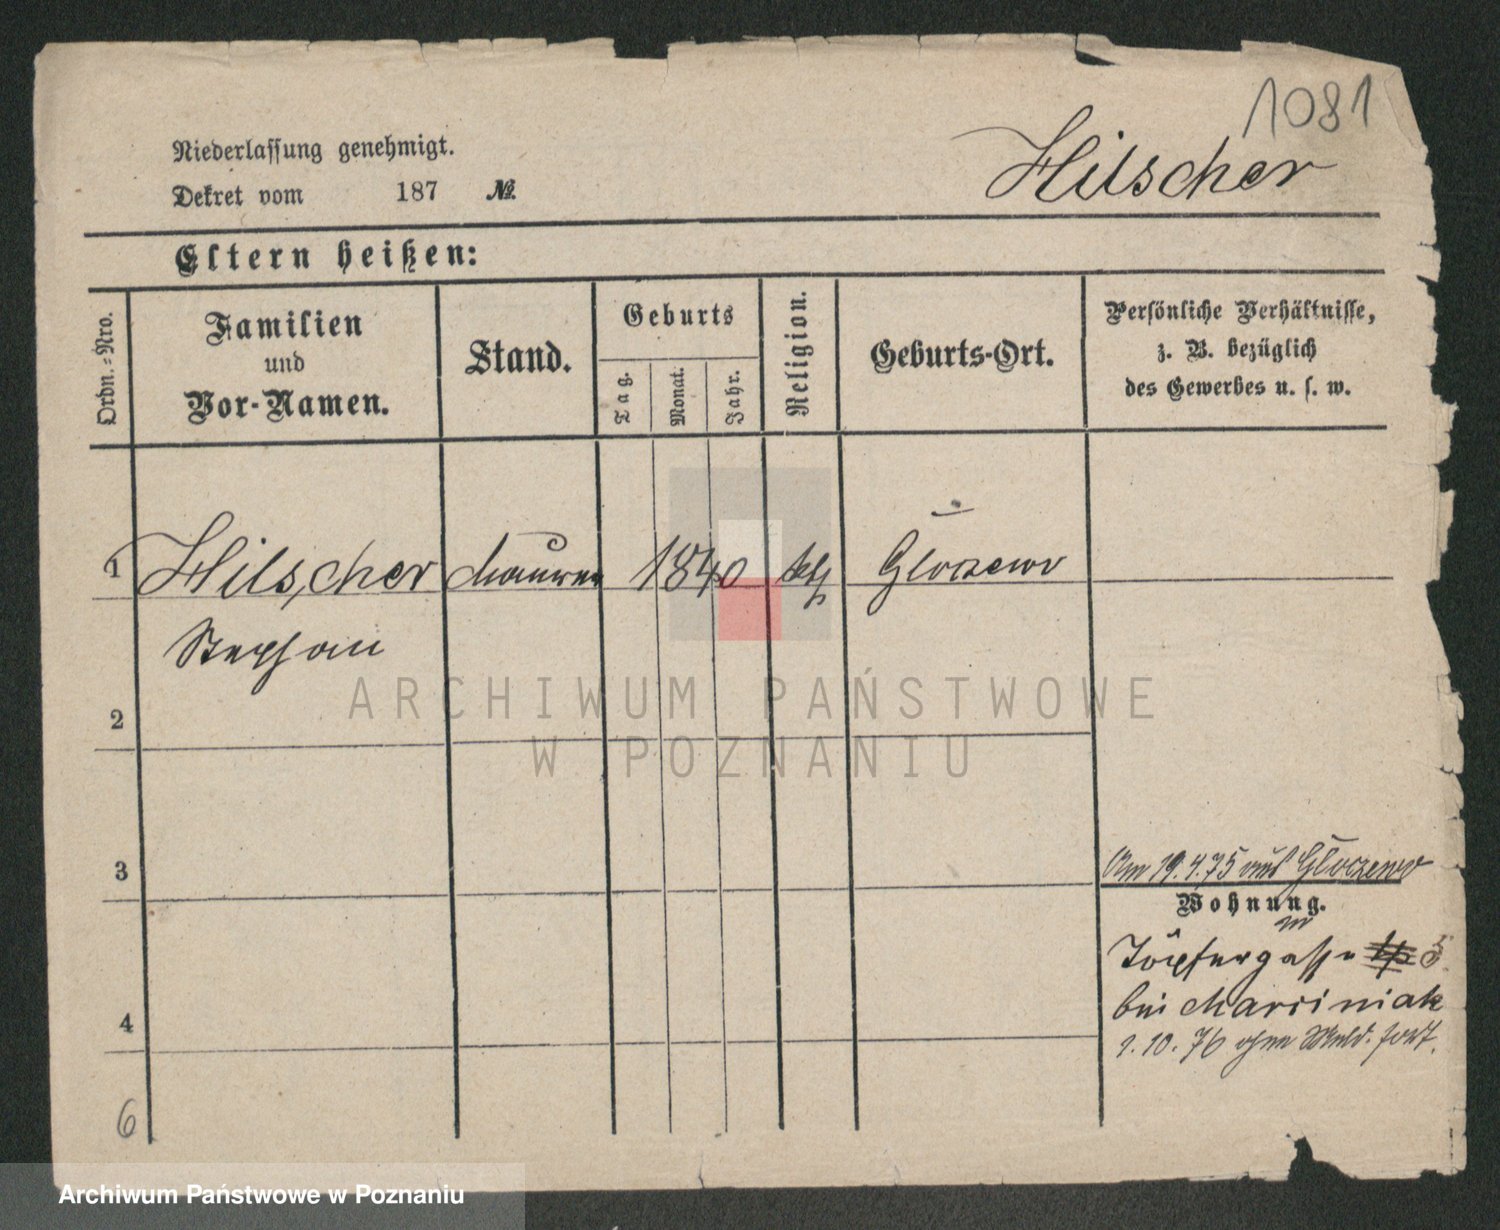 1081
Hilscher
Niederlassung genehmigt.
Dekret vom 187 №.
Eltern heißen:
Ordn.-Nro.
Familien
und
Vor-Namen.
Stand.
Geburts
Tag.
Monat.
Jahr.
Religion.
Geburts-Ort.
Persönliche Verhältnisse,
z. B. bezüglich
des Gewerbes u. s. w.
1 Hilscher Maurer 1840 kth Gloczewo
Stephan
2
3
Am 19.4.75 aus Gloczewo
Wohnung.
Töpfergasse 5
bei Marciniak
4
1.10.76 ohne Meld. fort.
6
ARCHIWUM PAŃSTWOWE
W POZNANIU
Archiwum Państwowe w Poznaniu